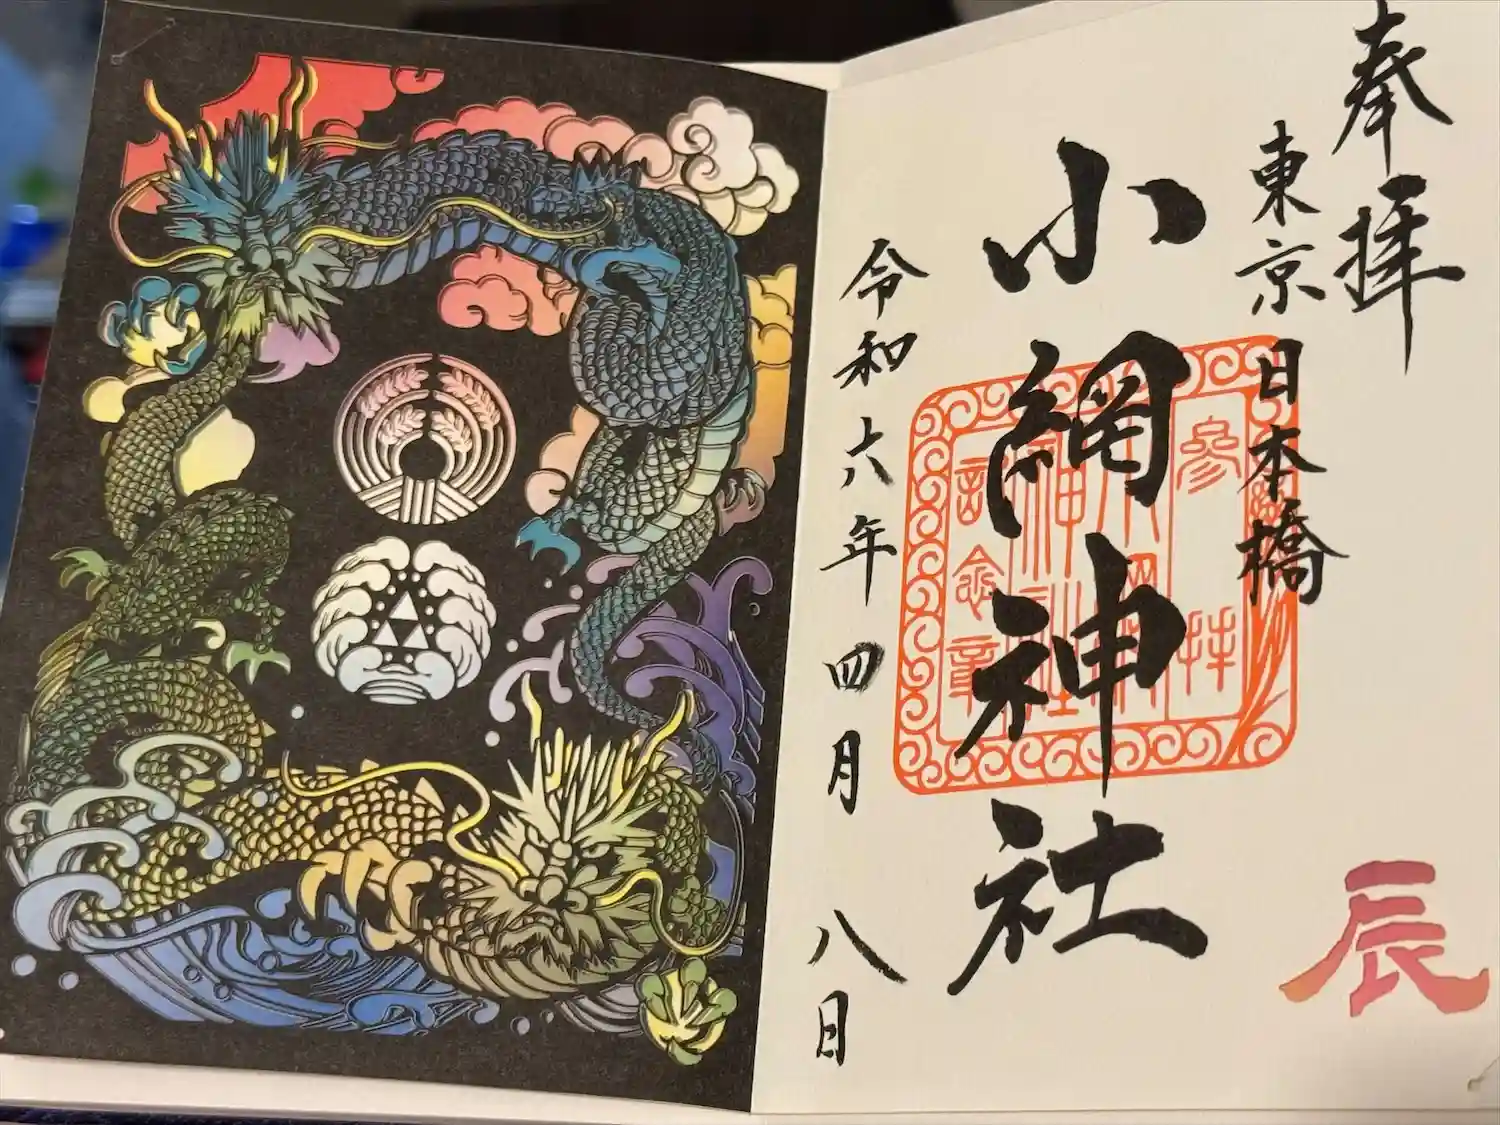 奉拝
東京日本橋
小網神社
参拝
小網
神社
記念章
令和六年四月八日
辰